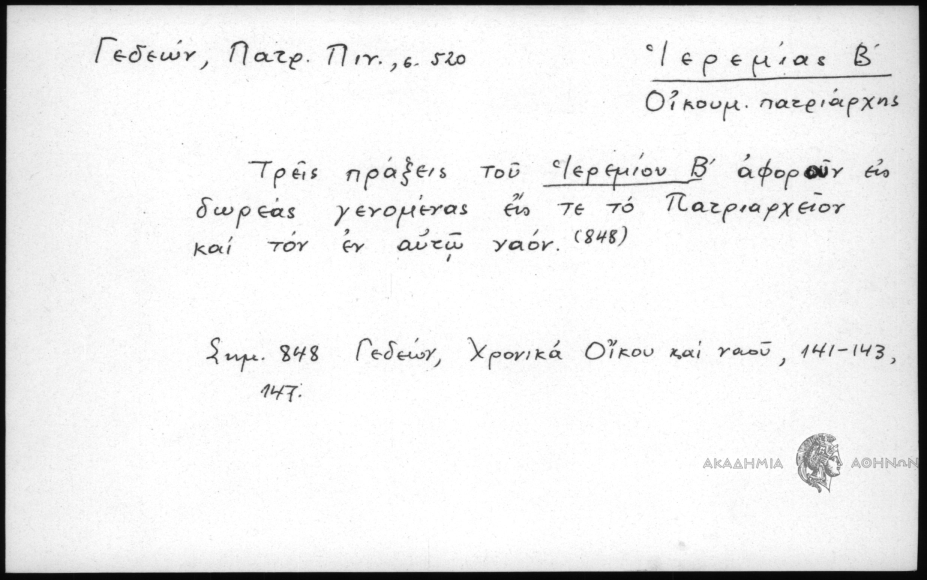 Γεδεών, Πατρ. Πιν., σ. 520
Ἱερεμίας Β΄
Οἰκουμ. πατριάρχης
Τρεῖς πράξεις τοῦ Ἱερεμίου Β΄ ἀφοροῦν εἰς
δωρεάς γενομένας εἴς τε τό Πατριαρχεῖον
καί τόν ἐν αὐτῷ ναόν. (848)
Σημ. 848 Γεδεών, Χρονικά Οἴκου καί ναοῦ, 141-143,
147.
ΑΚΑΔΗΜΙΑ ΑΘΗΝΩΝ